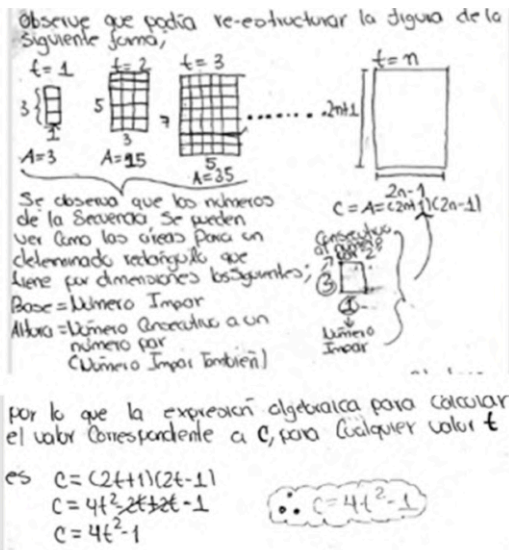 Observe que podia re-estructurar la figura de la
siguiente forma,
t=1 t=2 t=3 t=n
3 5 7 2n+1
1 3 5 2n-1
A=3 A=15 A=35 C=A=(2n+1)(2n-1)
Se observa que los números
de la Secuencia Se pueden
ver Como las áreas Para un
determinado rectángulo que
tiene por dimensiones los siguientes;
Base=Número Impar
Altura=Número Consecutivo a un
número par
(Número Impar También)
Consecutivo
al número
par 2
3
1
Número
Impar
por lo que la expresión algebraica para calcular
el valor Correspondiente a C, para Cualquier valor t
es C=(2t+1)(2t-1)
C=4t²-2t+2t-1
C=4t²-1
∴ C=4t²-1